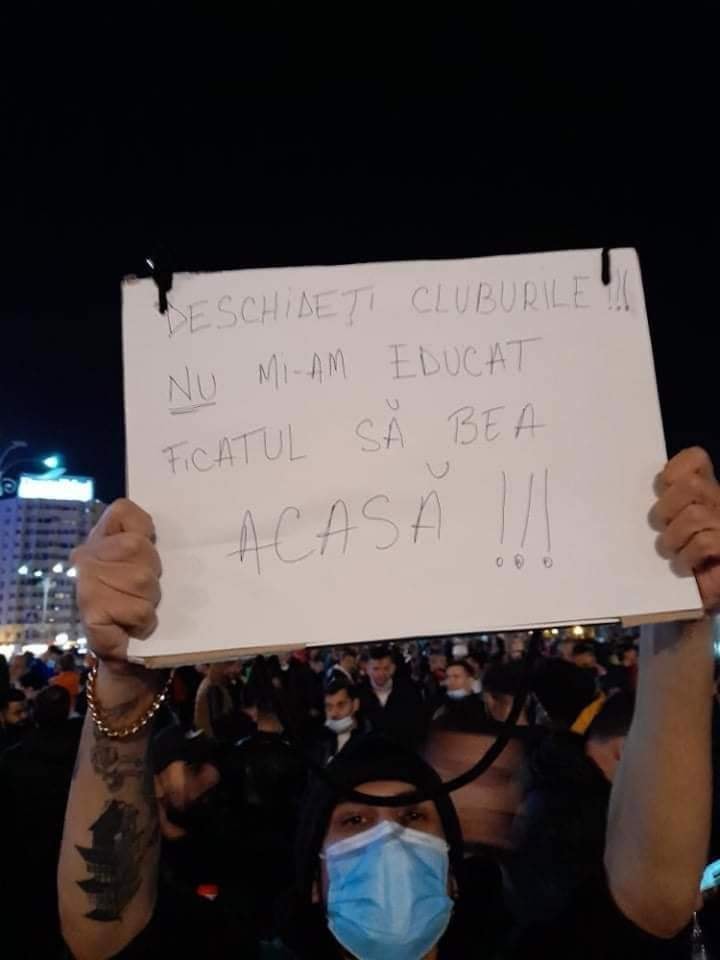 DESCHIDEȚI CLUBURILE !!!
NU MI-AM EDUCAT
FICATUL SĂ BEA
ACASĂ !!!